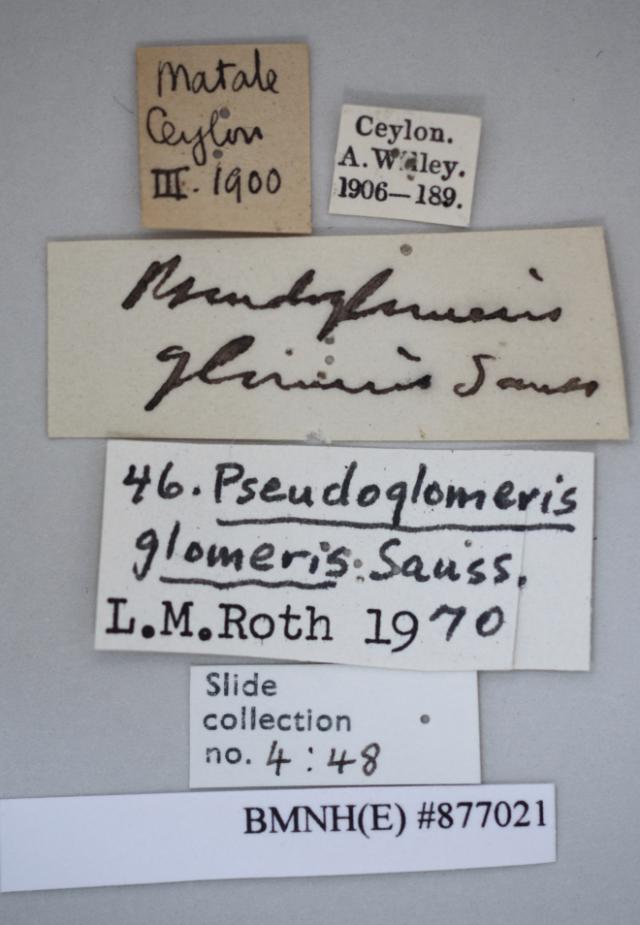 Matale
Ceylon
III. 1900
Ceylon.
A. Willey.
1906—189.
Pseudoglomeris
glomeris Sauss
46. Pseudoglomeris
glomeris. Sauss.
L.M.Roth 1970
Slide
collection
no. 4:48
BMNH(E) #877021